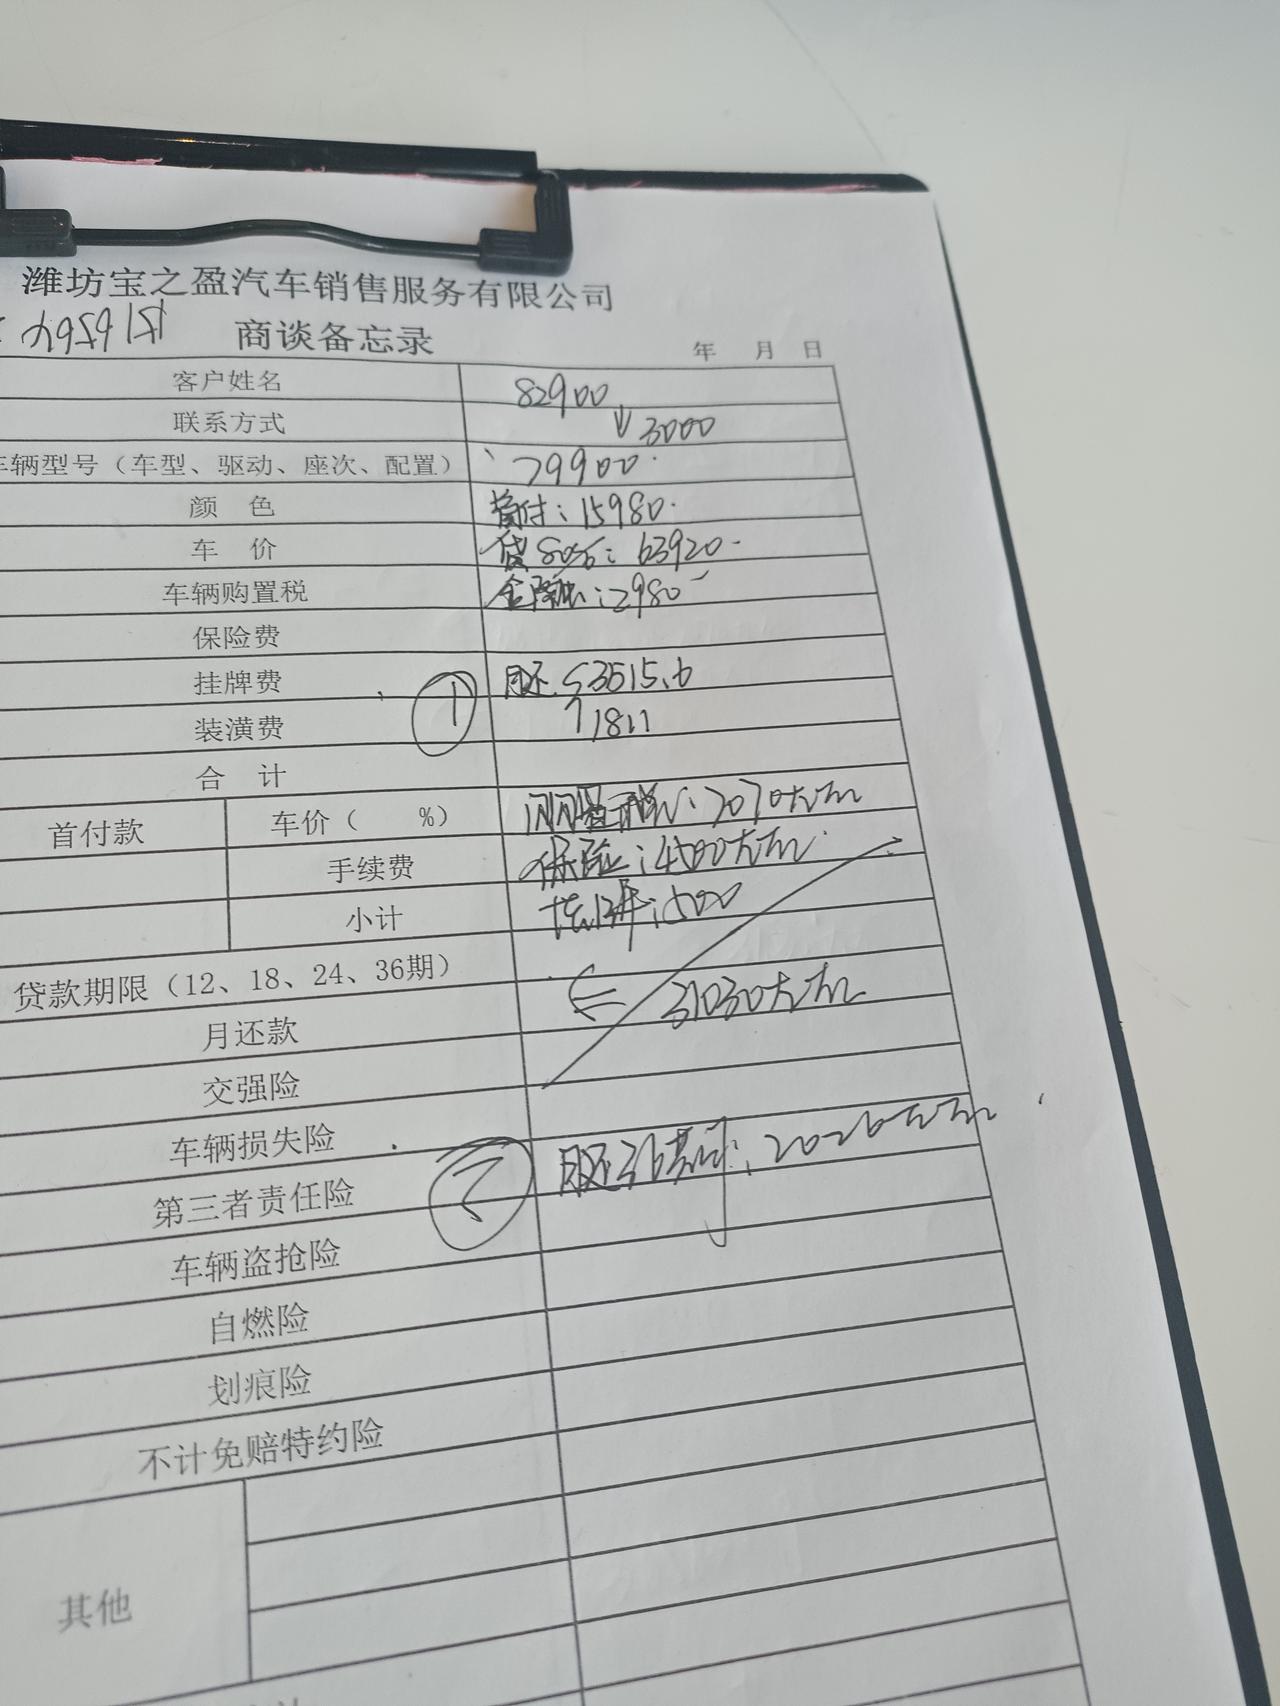 潍坊宝之盈汽车销售服务有限公司
商谈备忘录 年 月 日
客户姓名 82900
联系方式 ↓3000
车辆型号（车型、驱动、座次、配置） 79900
颜 色 首付：15980
车 价 贷80%：63920
车辆购置税 金融：2980
保险费
挂牌费 ① 月还 3515.6
装潢费 1811
合 计
首付款 车价（ %） 购置税：7070左右
手续费 保险：4500左右
小计 挂牌：500
贷款期限（12、18、24、36期） 31030左右
月还款
交强险
车辆损失险
第三者责任险 ② 月还36期：2026左右
车辆盗抢险
自燃险
划痕险
不计免赔特约险
其他